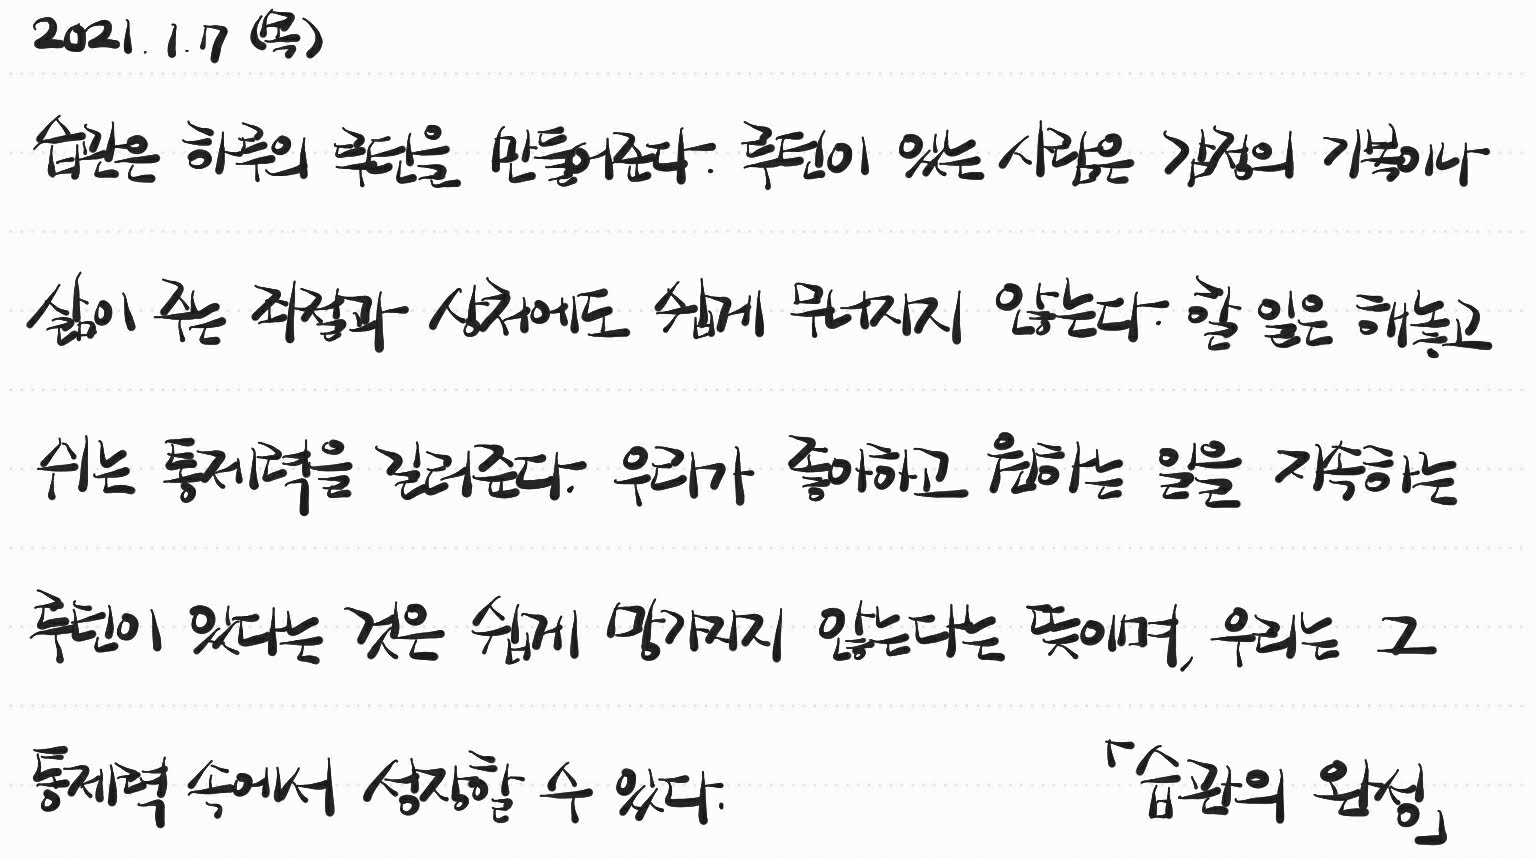 2021. 1. 7 (목)
습관은 하루의 루틴을 만들어준다. 루틴이 있는 사람은 감정의 기복이나
삶이 주는 좌절과 상처에도 쉽게 무너지지 않는다. 할 일은 해놓고
쉬는 통제력을 길러준다. 우리가 좋아하고 원하는 일을 지속하는
루틴이 있다는 것은 쉽게 망가지지 않는다는 뜻이며, 우리는 그
통제력 속에서 성장할 수 있다. 「습관의 완성」